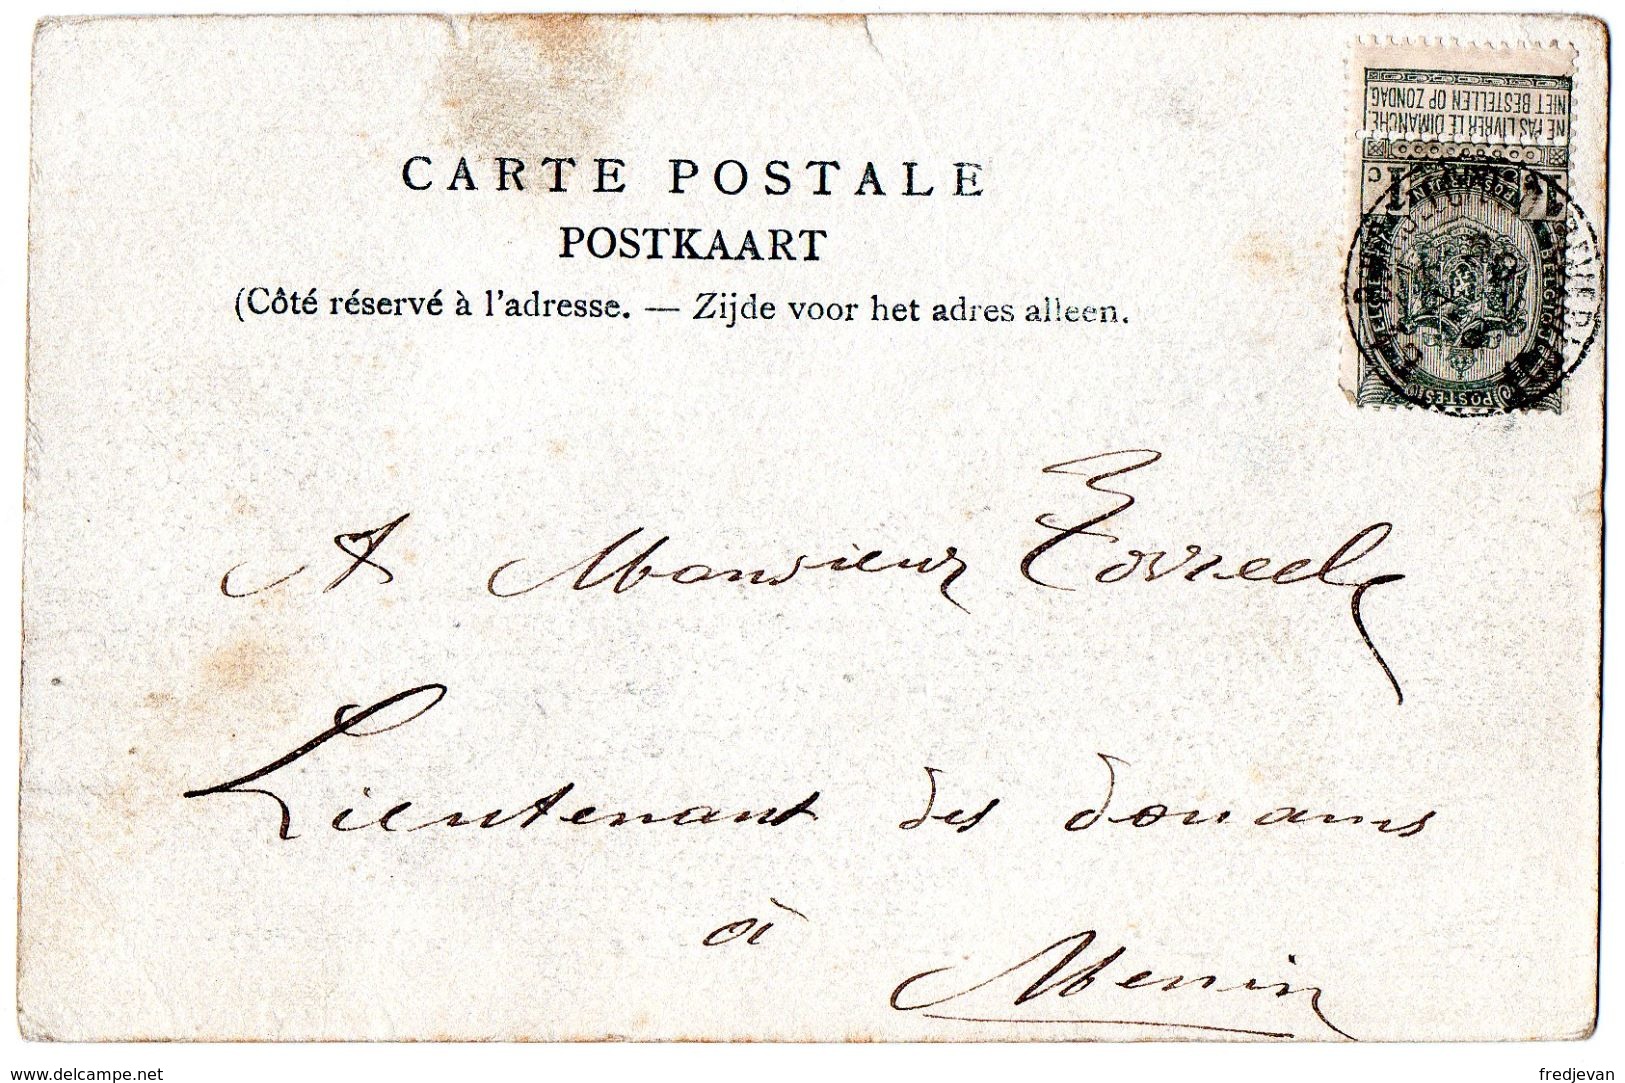 CARTE POSTALE
POSTKAART
(Côté réservé à l'adresse. — Zijde voor het adres alleen.
NE PAS LIVRER LE DIMANCHE
NIET BESTELLEN OP ZONDAG
1 c 1
POSTES
BELGIQUE
A Monsieur
Lieutenant des douanes
à
Menin
www.delcampe.net
fredjevan